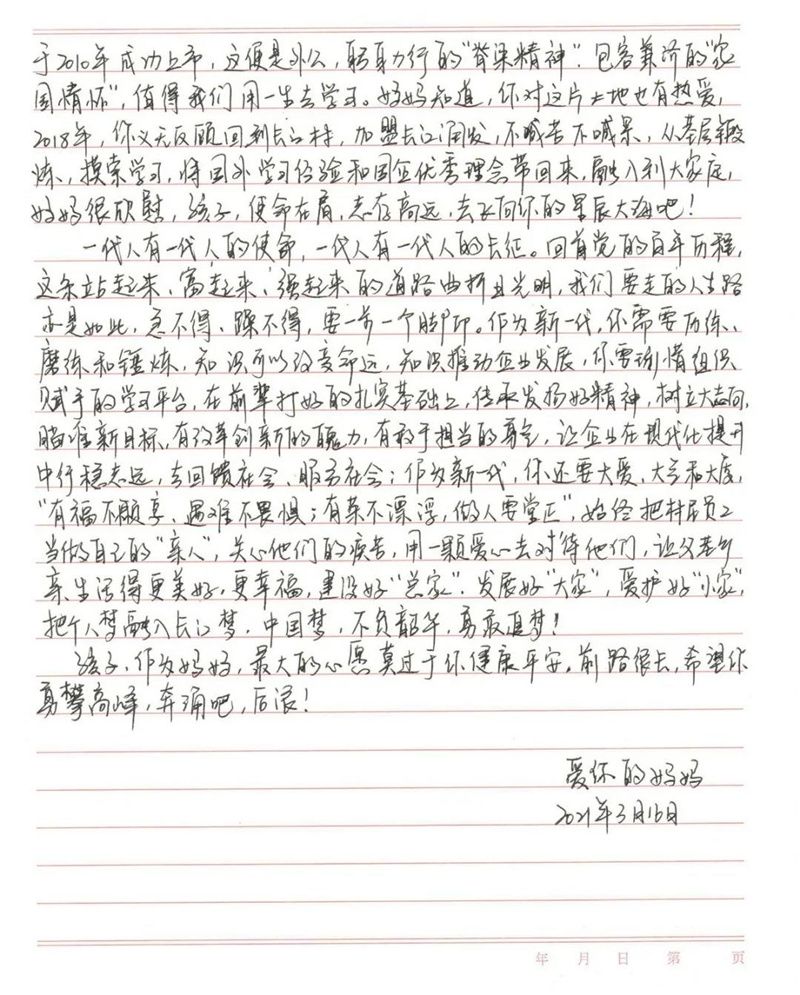 于2010年成功上市，这便是外公，躬身力行的“脊梁精神”．包容兼济的“家
国情怀”，值得我们用一生去学习。妈妈知道，你对这片土地也有热爱，
2018年，你义无反顾回到长江村，加盟长江润发，不喊苦不喊累，从基层锻
炼、摸索学习，将国外学习经验和国企优秀理念带回来，融入到大家庭，
妈妈很欣慰，孩子，使命在肩，志存高远，去飞向你的星辰大海吧！
一代人有一代人的使命，一代人有一代人的长征。回首党的百年历程，
这条站起来、富起来、强起来的道路曲折且光明，我们要走的人生路
亦是如此，急不得、躁不得，要一步一个脚印。作为新一代，你需要历练、
磨练和锤炼，知识可以改变命运，知识推动企业发展，你要珍惜组织
赋予的学习平台，在前辈打好的扎实基础上，传承发扬好精神，树立大志向，
瞄准新目标，有改革创新的魄力，有敢于担当的勇气，让企业在现代化提升
中行稳志远，去回馈社会、服务社会；作为新一代，你还要大爱、大气和大度，
“有福不顾享、遇难不畏惧；有菜不漂浮，做人要堂正”，始终把村民员工
当做自己的“亲人”，关心他们的疾苦，用一颗爱心去对待他们，让父老乡
亲生活得更美好、更幸福，建设好“总家”．发展好“大家”，爱护好“小家”，
把个人梦融入长江梦．中国梦，不负韶华，勇敢追梦！
孩子，作为妈妈，最大的心愿莫过于你健康平安，前路很长，希望你
勇攀高峰，奔涌吧，后浪！
爱你的妈妈
2021年3月16日
年 月 日 第 页